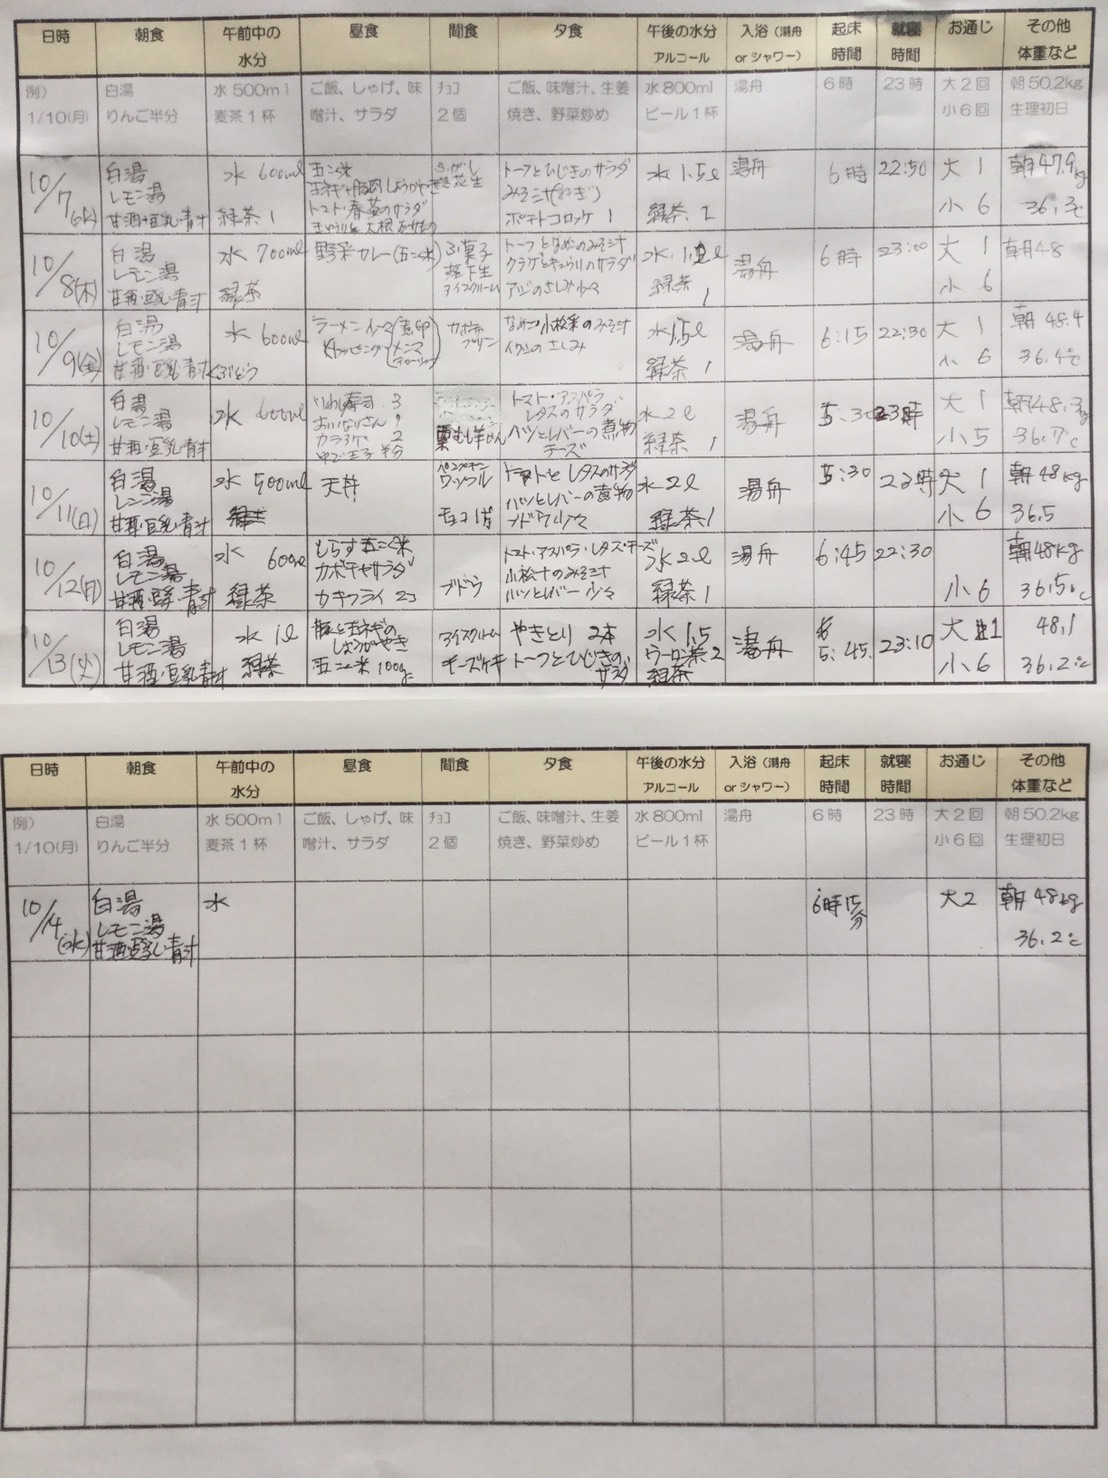 日時 朝食 午前中の水分 昼食 間食 夕食 午後の水分 アルコール 入浴（湯舟 or シャワー） 起床時間 就寝時間 お通じ その他 体重など
例） 白湯 水 500ml ご飯、しゃけ、味 ﾁｮｺ ご飯、味噌汁、生姜 水 800ml 湯舟 6時 23時 大2回 朝 50.2kg
1/10(月) りんご半分 麦茶1杯 噌汁、サラダ 2個 焼き、野菜炒め ビール1杯 小6回 生理初日
10/7(水) 白湯 水 600ml 五こく米 トーフとひじきのサラダ 水 1.5ℓ 湯舟 6時 22:50 大 1 朝 47.9kg
レモン湯 みそ汁(ねぎ)
甘酒・豆乳・青汁 緑茶 1 トマト・春菊のサラダ ポテトコロッケ 1 緑茶 2 小 6 36.3℃
10/8(木) 白湯 水 700ml 野菜カレー(五こく米) ふ菓子 トーフとなめこのみそ汁 水 湯舟 6時 23:00 大 1 朝 48
レモン湯 落下生 クラゲときゅうりのサラダ 緑茶 1
甘酒・豆乳・青汁 緑茶 アイスクリーム アジのさしみ 少々 小 6
10/9(金) 白湯 水 600ml ラーメン カボチャプリン 小松菜のみそ汁 水 1.5ℓ 湯舟 6:15 22:30 大 1 朝 48.4
レモン湯 トッピング 煮卵 メンマ イクラの さしみ
甘酒・豆乳・青汁 ぶどう 緑茶 1 小 6 36.4℃
10/10(土) 白湯 水 600ml いわし寿司 3 トマト・アスパラ 水 2ℓ 湯舟 5:30 23時 大 1 朝 48.3kg
レモン湯 おいなりさん 1 栗むし羊かん レタスのサラダ
カラアゲ 2 ハツとレバーの煮物
甘酒・豆乳・青汁 ゆで玉子 半分 チーズ 緑茶 1 小 5 36.7℃
10/11(日) 白湯 水 500ml 天丼 パンプキンワッフル トマトとレタスのサラダ 水 2ℓ 湯舟 5:30 23時 大 1 朝 48kg
レモン湯 ハツとレバーの煮物
甘酒・豆乳・青汁 チョコ ブドウ 少々 緑茶 1 小 6 36.5
10/12(月) 白湯 水 600ml しらす 五こく米 トマト・アスパラ・レタス・チーズ 水 2ℓ 湯舟 6:45 22:30 朝 48kg
レモン湯 カボチャサラダ 小松ナのみそ汁
甘酒・豆乳・青汁 緑茶 カキフライ 2コ ブドウ ハツとレバー 少々 緑茶 1 小 6 36.5℃
10/13(火) 白湯 水 1ℓ 豚と玉ネギの アイスクリーム やきとり 2本 水 1.5 湯舟 5:45 23:10 大 1 48.1
レモン湯 しょうがやき ウーロン茶 2
甘酒・豆乳・青汁 緑茶 五こく米 100g チーズケーキ トーフとひじきのサラダ 緑茶 小 6 36.2℃
日時 朝食 午前中の水分 昼食 間食 夕食 午後の水分 アルコール 入浴（湯舟 or シャワー） 起床時間 就寝時間 お通じ その他 体重など
例） 白湯 水 500ml ご飯、しゃげ、味 ﾁｮｺ ご飯、味噌汁、生姜 水 800ml 湯舟 6時 23時 大2回 朝 50.2kg
1/10(月) りんご半分 麦茶1杯 噌汁、サラダ 2個 焼き、野菜炒め ビール1杯 小6回 生理初日
10/14(水) 白湯 水 6時15分 大2 朝 48kg
レモン湯
甘酒・豆乳・青汁 36.2℃